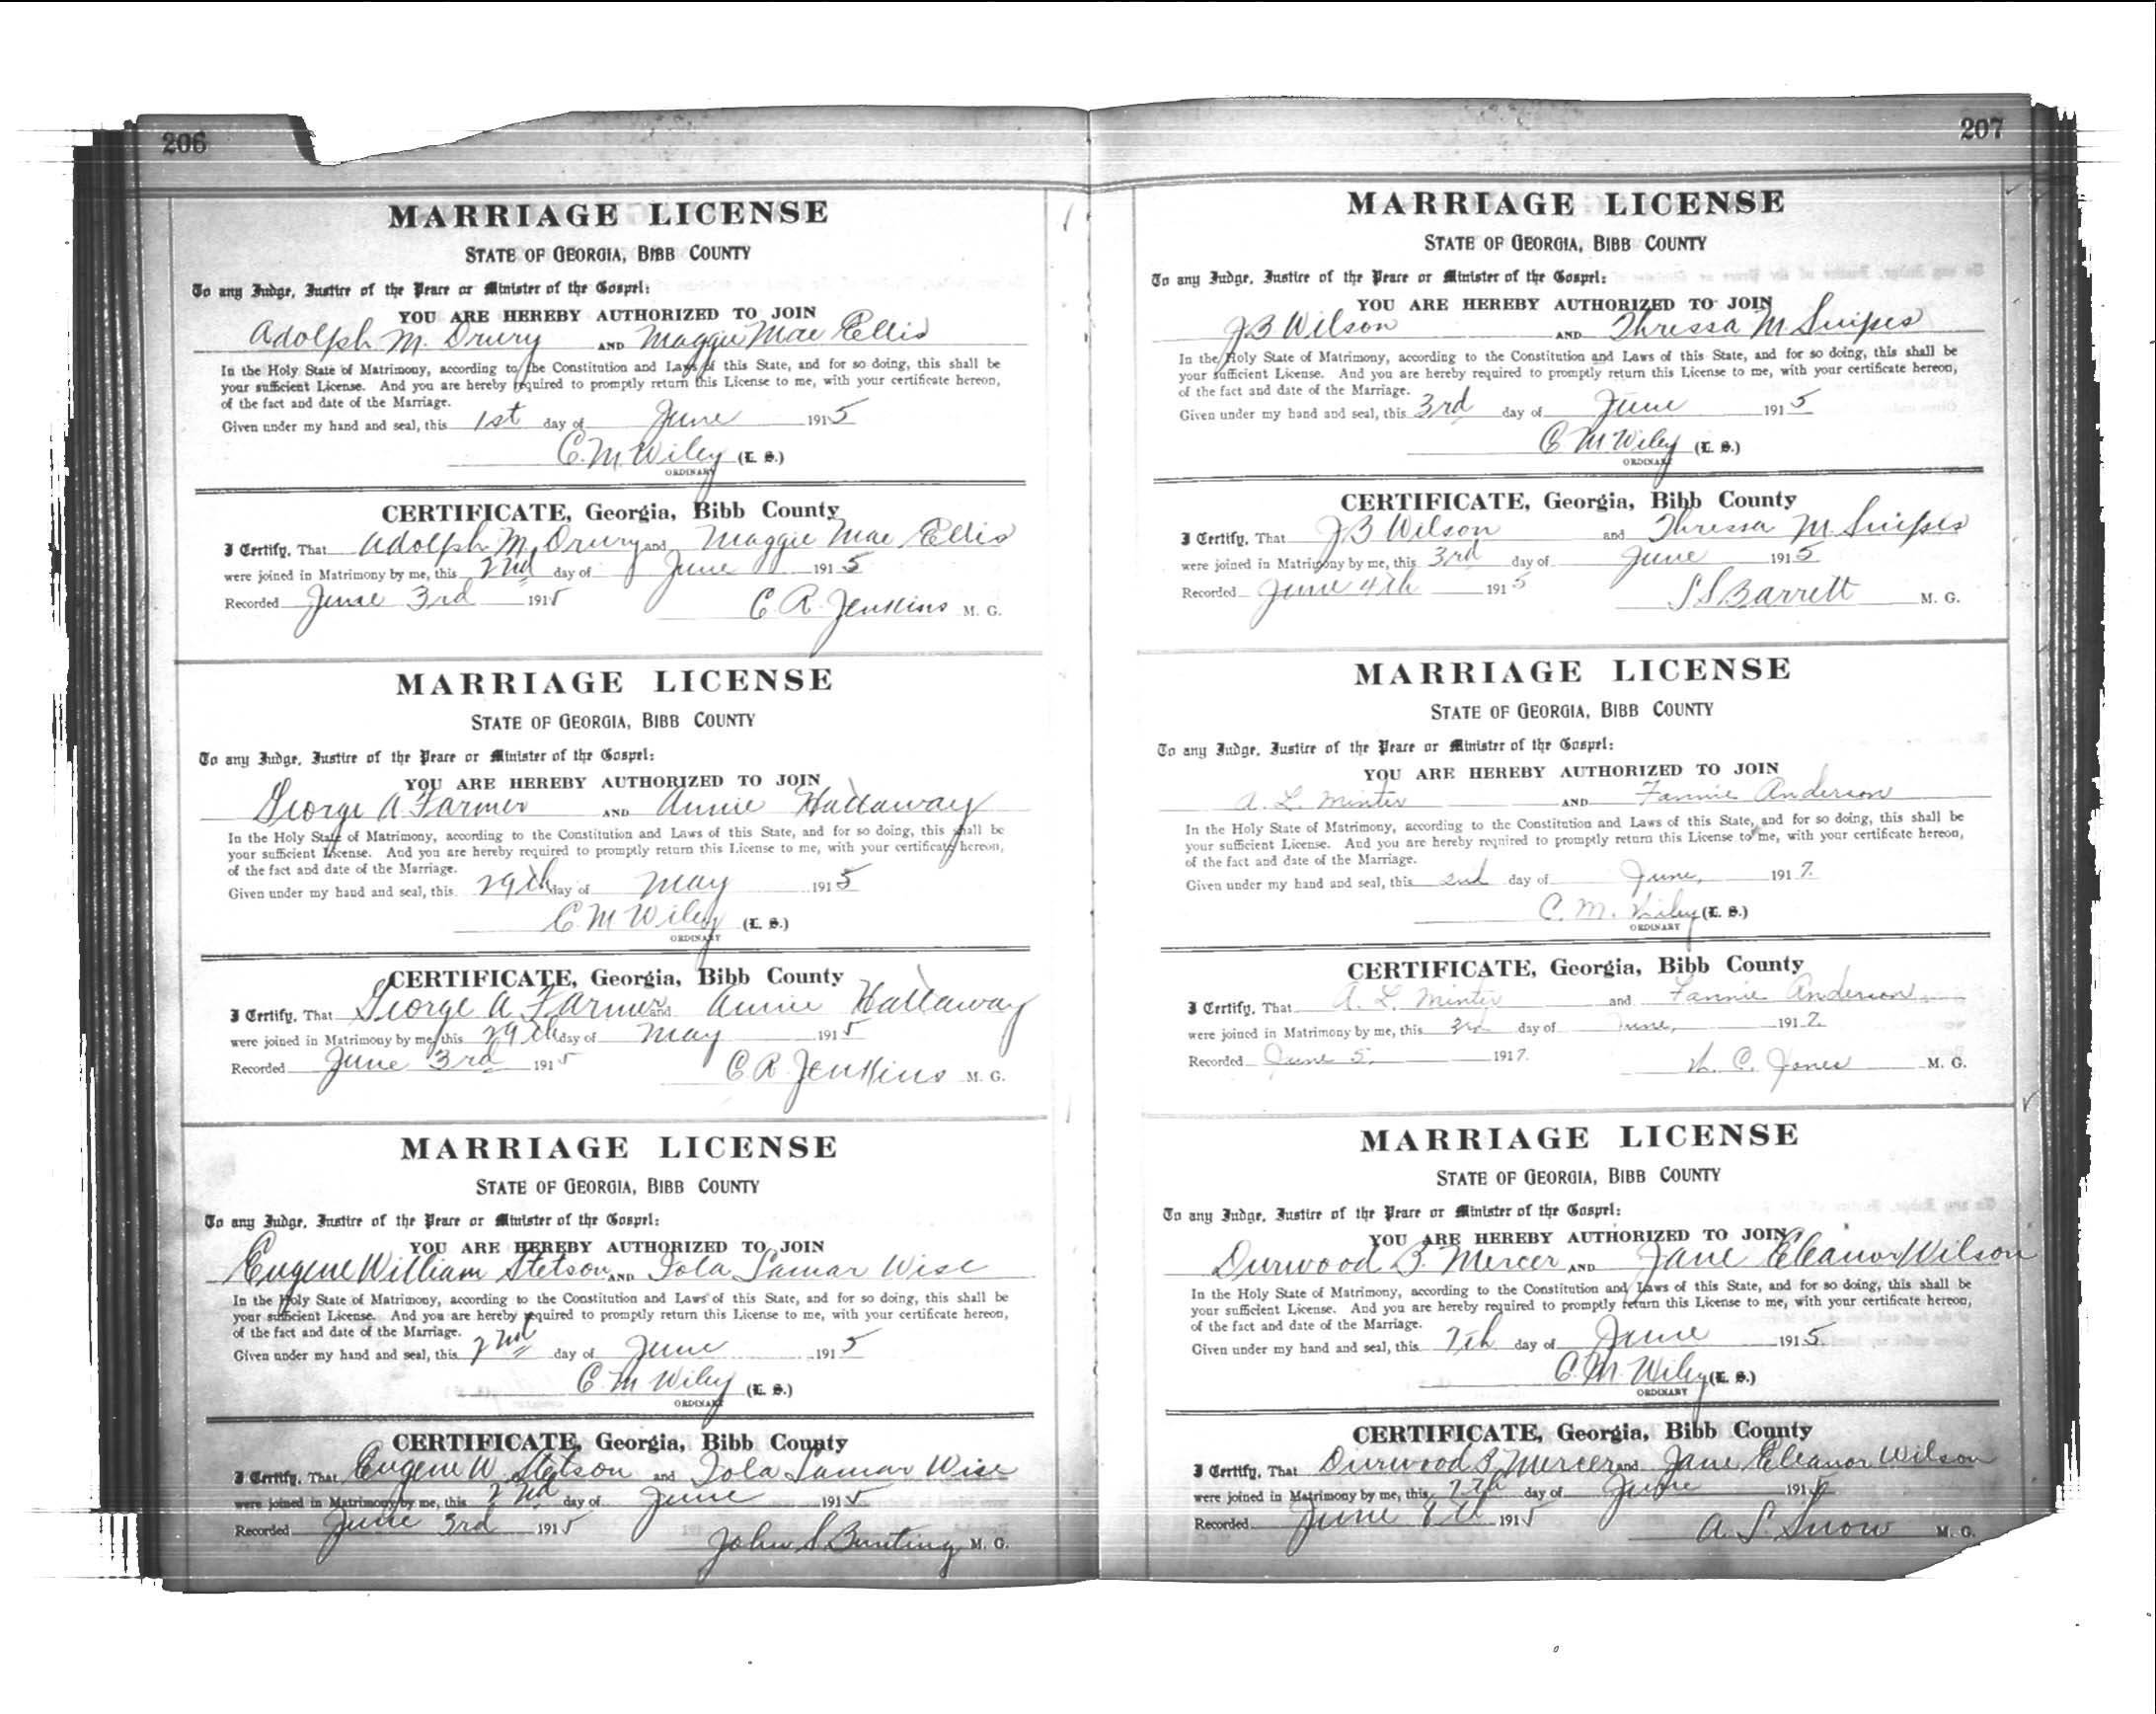 206
MARRIAGE LICENSE
STATE OF GEORGIA, BIBB COUNTY
To any Judge, Justice of the Peace or Minister of the Gospel:
YOU ARE HEREBY AUTHORIZED TO JOIN
Adolph M. Drury AND Maggie Mae Ellis
In the Holy State of Matrimony, according to the Constitution and Laws of this State, and for so doing, this shall be
your sufficient License. And you are hereby required to promptly return this License to me, with your certificate hereon,
of the fact and date of the Marriage.
Given under my hand and seal, this 1st day of June 1915
C. M. Wiley (L. S.)
ORDINARY
CERTIFICATE, Georgia, Bibb County
I Certify, That Adolph M. Drury and Maggie Mae Ellis
were joined in Matrimony by me, this 2nd day of June 1915
Recorded June 3rd 1915 C. R. Jenkins M. G.
MARRIAGE LICENSE
STATE OF GEORGIA, BIBB COUNTY
To any Judge, Justice of the Peace or Minister of the Gospel:
YOU ARE HEREBY AUTHORIZED TO JOIN
George A. Farmer AND Annie Hattaway
In the Holy State of Matrimony, according to the Constitution and Laws of this State, and for so doing, this shall be
your sufficient License. And you are hereby required to promptly return this License to me, with your certificate hereon,
of the fact and date of the Marriage.
Given under my hand and seal, this 29th day of May 1915
C M Wiley (L. S.)
ORDINARY
CERTIFICATE, Georgia, Bibb County
I Certify, That George A Farmer and Annie Hattaway
were joined in Matrimony by me, this 29th day of May 1915
Recorded June 3rd 1915 C R Jenkins M. G.
MARRIAGE LICENSE
STATE OF GEORGIA, BIBB COUNTY
To any Judge, Justice of the Peace or Minister of the Gospel:
YOU ARE HEREBY AUTHORIZED TO JOIN
Eugene William Stetson AND Iola Lamar Wise
In the Holy State of Matrimony, according to the Constitution and Laws of this State, and for so doing, this shall be
your sufficient License. And you are hereby required to promptly return this License to me, with your certificate hereon,
of the fact and date of the Marriage.
Given under my hand and seal, this 2nd day of June 1915
C M Wiley (L. S.)
ORDINARY
CERTIFICATE, Georgia, Bibb County
I Certify, That Eugene W. Stetson and Iola Lamar Wise
were joined in Matrimony by me, this 2nd day of June 1915
Recorded June 3rd 1915
John S Bunting M. G.
207
MARRIAGE LICENSE
STATE OF GEORGIA, BIBB COUNTY
To any Judge, Justice of the Peace or Minister of the Gospel:
YOU ARE HEREBY AUTHORIZED TO JOIN
J B Wilson AND Thressa M. Snipes
In the Holy State of Matrimony, according to the Constitution and Laws of this State, and for so doing, this shall be
your sufficient License. And you are hereby required to promptly return this License to me, with your certificate hereon,
of the fact and date of the Marriage.
Given under my hand and seal, this 3rd day of June 1915
C M Wiley (L. S.)
ORDINARY
CERTIFICATE, Georgia, Bibb County
I Certify, That J B Wilson and Thressa M. Snipes
were joined in Matrimony by me, this 3rd day of June 1915
Recorded June 4th 1915 S S Barrett M. G.
MARRIAGE LICENSE
STATE OF GEORGIA, BIBB COUNTY
To any Judge, Justice of the Peace or Minister of the Gospel:
YOU ARE HEREBY AUTHORIZED TO JOIN
A. L. Minter AND Fannie Anderson
In the Holy State of Matrimony, according to the Constitution and Laws of this State, and for so doing, this shall be
your sufficient License. And you are hereby required to promptly return this License to me, with your certificate hereon,
of the fact and date of the Marriage.
Given under my hand and seal, this 2nd day of June, 1917.
C. M. Wiley (L. S.)
ORDINARY
CERTIFICATE, Georgia, Bibb County
I Certify, That A. L. Minter and Fannie Anderson
were joined in Matrimony by me, this 3rd day of June, 1917.
Recorded June 5, 1917. C. Jones M. G.
MARRIAGE LICENSE
STATE OF GEORGIA, BIBB COUNTY
To any Judge, Justice of the Peace or Minister of the Gospel:
YOU ARE HEREBY AUTHORIZED TO JOIN
Durwood B. Mercer AND Jane Eleanor Wilson
In the Holy State of Matrimony, according to the Constitution and Laws of this State, and for so doing, this shall be
your sufficient License. And you are hereby required to promptly return this License to me, with your certificate hereon,
of the fact and date of the Marriage.
Given under my hand and seal, this 7th day of June 1915.
C. M. Wiley (L. S.)
ORDINARY
CERTIFICATE, Georgia, Bibb County
I Certify, That Durwood B. Mercer and Jane Eleanor Wilson
were joined in Matrimony by me, this 7th day of June 1915
Recorded June 8th 1915 A. S. Snow M. G.